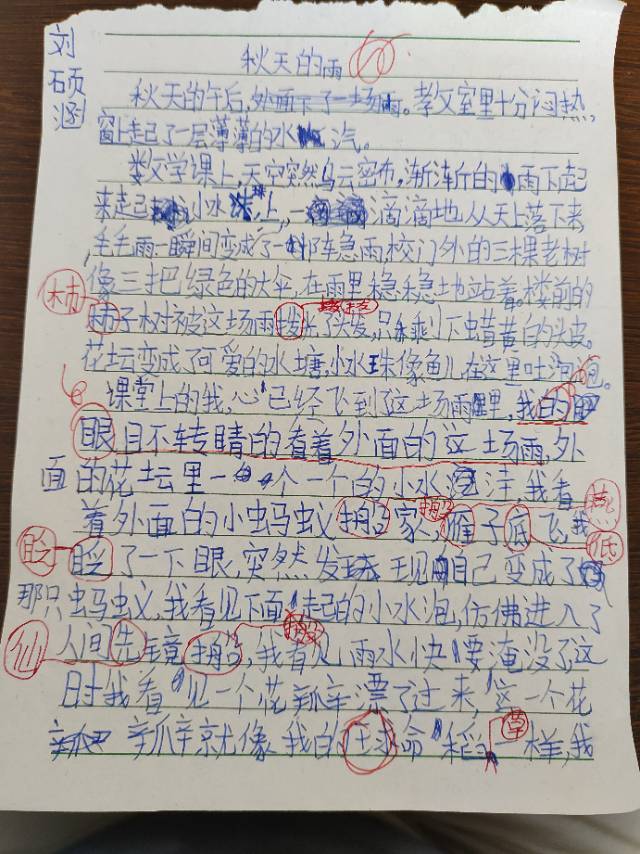 刘硕涵
秋天的雨
秋天的午后,外面下了一场雨。教室里十分闷热,
窗上起了一层薄薄的水汽。
数文学课上,天空突然乌云密布,渐渐的雨下起
来起小水珠上,一滴滴地从天上落下来
毛毛雨一瞬间变成了一阵急雨校门外的三棵老树
像三把绿色的大伞,在雨里稳稳地站着。楼前的
柿
柿子树被这场雨拔了头发,只剩下蜡黄的头皮。
花坛变成了可爱的水塘,小水珠像鱼儿在这里吐泡泡。
课堂上的我,心已经飞到了这场雨里,我的
眼目不转睛的看着外面的这场雨,外
面的花坛里一个一个的小水洼,我看
着外面的小蚂蚁搬家,雁子底飞我
燕
低
眨
眨了一下眼,突然发现自己变成了
那只蚂蚁,我看见下面起的小水泡,仿佛进入了
仙
人间先境,我看见雨水快要淹没了这
时我看见一个花瓣漂了过来,这一个花
瓣就像我的求命稻一样,我
草